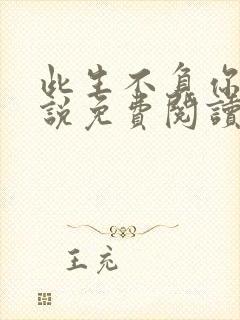 此生不負你
說免費閱讀
王充